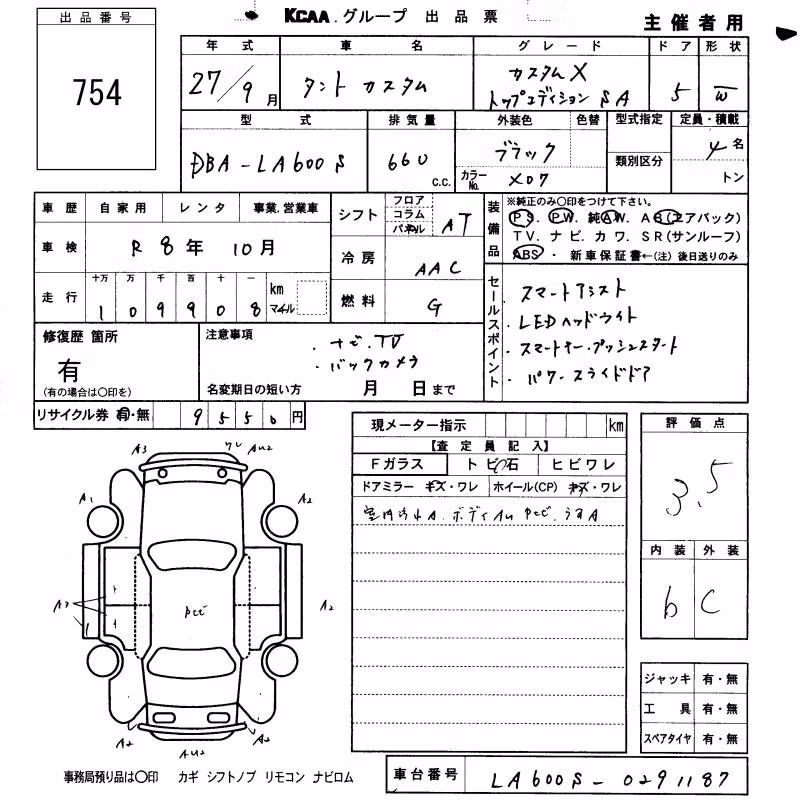 KCAA.グループ 出品票
主催者用
出品番号
754
年式 車名 グレード ドア 形状
27/9月 タント カスタム カスタムX トップエディション SA 5 W
型式 排気量 外装色 色替 型式指定 定員・積載
DBA-LA600S 660 C.C. ブラック 類別区分 4名
カラーNo. X07 トン
車歴 自家用 レンタ 事業.営業車
車検 R 8年 10月
走行 十万 万 千 百 十 一 km マイル
1 0 9 9 0 8
シフト フロア コラム パネル AT
冷房 AAC
燃料 G
装備品 ※純正のみ〇印をつけて下さい。
PS. PW. 純AW. AB(エアバック)
TV. ナビ. カワ. SR(サンルーフ)
ABS・新車保証書←(注) 後日送りのみ
セールスポイント
・スマートアシスト
・LEDヘッドライト
・スマートキー.プッシュスタート
・パワースライドドア
修復歴 箇所
有
(有の場合は〇印を)
注意事項
・ナビ.TV
・バックカメラ
名変期日の短い方 月 日まで
リサイクル券 有・無 9550円
現メーター指示 km
【査定員記入】
Fガラス トビ石 ヒビワレ
ドアミラー キズ・ワレ ホイール(CP) キズ・ワレ
室内汚れA. ボディAu Pセビ. うすA
評価点
3.5
内装 外装
b C
ジャッキ 有・無
工具 有・無
スペアタイヤ 有・無
A3 ワレ AU2
A1 A2
A3 A2
A2 AU2 A2
事務局預り品は〇印 カギ シフトノブ リモコン ナビロム
車台番号 LA600S-0291187